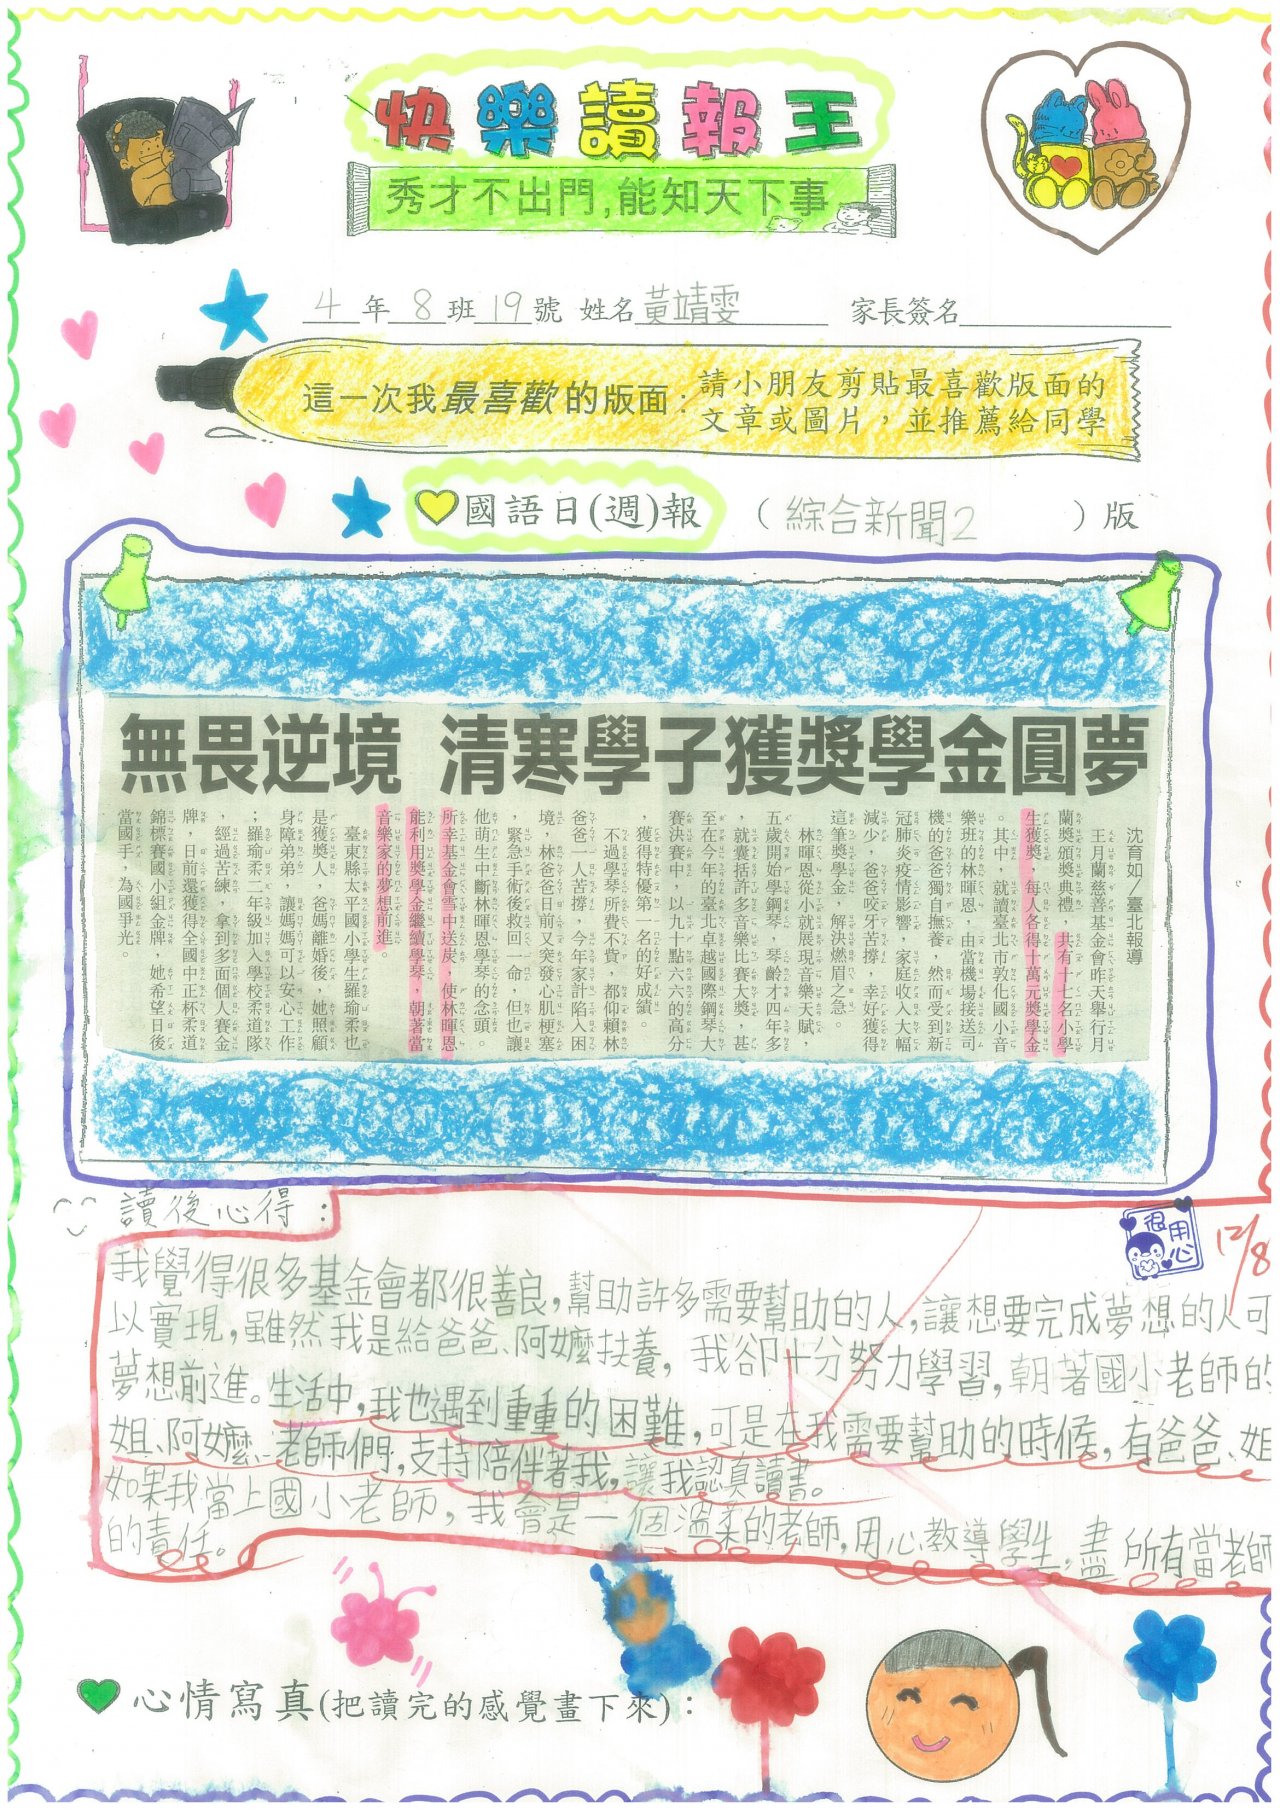 快樂讀報王
秀才不出門,能知天下事
4年8班19號 姓名黃靖雯 家長簽名
這一次我最喜歡的版面:
請小朋友剪貼最喜歡版面的
文章或圖片,並推薦給同學
國語日(週)報 (綜合新聞2)版
無畏逆境 清寒學子獲獎學金圓夢
沈育如/臺北報導
王月蘭慈善基金會昨天舉行月
蘭獎頒獎典禮,共有十七名小學
生獲獎,每人各得十萬元獎學金
。其中,就讀臺北市敦化國小音
樂班的林暉恩,由當機場接送司
機的爸爸獨自撫養,然而受到新
冠肺炎疫情影響,家庭收入大幅
減少,爸爸咬牙苦撐,幸好獲得
這筆獎學金,解決燃眉之急。
林暉恩從小就展現音樂天賦,
五歲開始學鋼琴,琴齡才四年多
,就囊括許多音樂比賽大獎,甚
至在今年的臺北卓越國際鋼琴大
賽決賽中,以九十點六六的高分
,獲得特優第一名的好成績。
不過學琴所費不貲,都仰賴林
爸爸一人苦撐,今年家計陷入困
境,林爸爸日前又突發心肌梗塞
,緊急手術後救回一命,但也讓
他萌生中斷林暉恩學琴的念頭。
所幸基金會雪中送炭,使林暉恩
能利用獎學金繼續學琴,朝著當
音樂家的夢想前進。
臺東縣太平國小學生羅瑜柔也
是獲獎人,爸媽離婚後,她照顧
身障弟弟,讓媽媽可以安心工作
;羅瑜柔二年級加入學校柔道隊
,經過苦練,拿到多面個人賽金
牌,日前還獲得全國中正杯柔道
錦標賽國小組金牌,她希望日後
當國手,為國爭光。
讀後心得:
很用心
12/8
我覺得很多基金會都很善良,幫助許多需要幫助的人,讓想要完成夢想的人可
以實現,雖然我是給爸爸、阿嬤扶養,我卻十分努力學習,朝著國小老師的
夢想前進。生活中,我也遇到重重的困難,可是在我需要幫助的時候,有爸爸、姐
姐、阿嬤、老師們,支持陪伴著我,讓我認真讀書。
如果我當上國小老師,我會是一個溫柔的老師,用心教導學生,盡所有當老師
的責任。
心情寫真(把讀完的感覺畫下來):